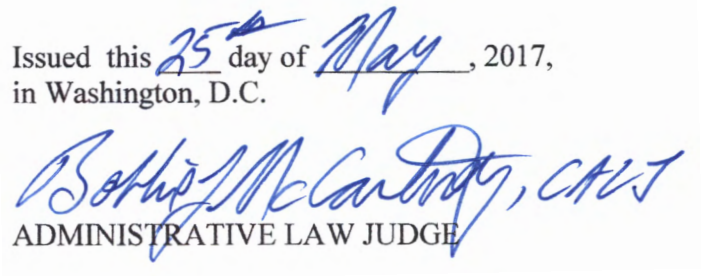 Issued this 25th day of May, 2017,
in Washington, D.C.
Bobbie J McCartney, CALJ
ADMINISTRATIVE LAW JUDGE